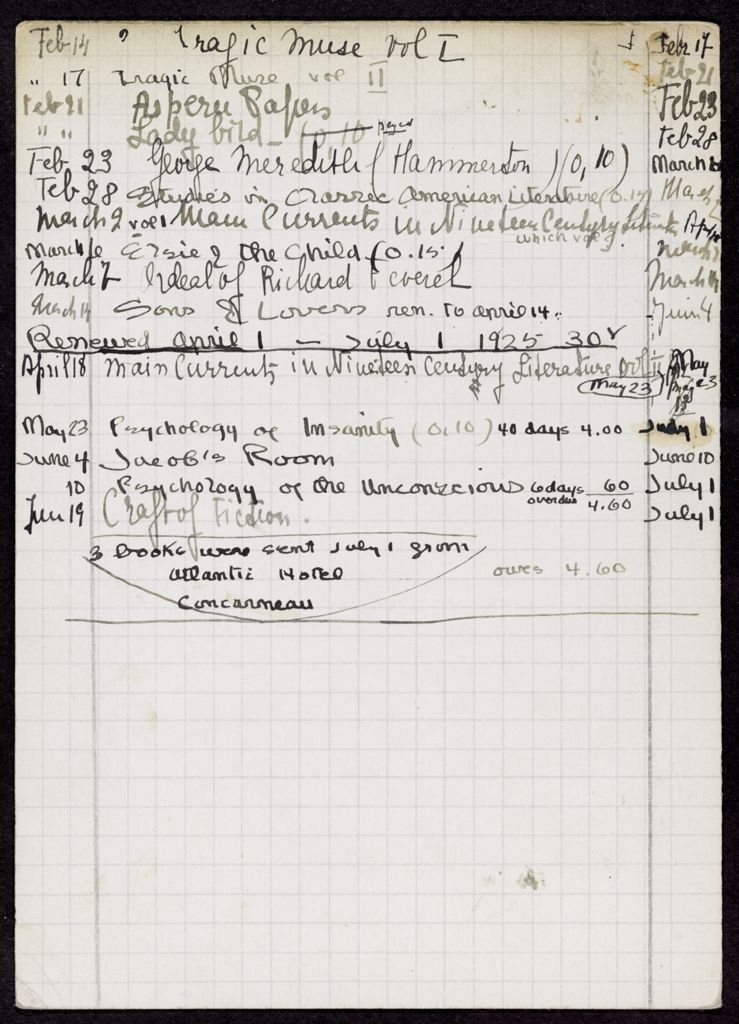 Feb 14 Tragic Muse Vol I Feb 17
" 17 Tragic Muse vol II Feb 21
Feb 21 Aspern Papers Feb 23
" " Lady bird - (0,10 payed Feb 28
Feb 23 George Meredith (Hammerton) (0,10) March
Feb 28 Studies in Classic American Literature (0.15) March
March 2 vol 1 Main Currents in Nineteen Century
which vol?
March 6 Elsie & the Child (0.15)
March 7 Ordeal of Richard Feverel March
March 14 Sons & Lovers ren. to april 14. June 4
Renewed april 1 — July 1 1925 30
April 18 Main Currents in Nineteen Century Literature vol II May
May 23
May 23 Psychology of Insanity (0.10) 40 days 4.00 July 1
June 4 Jacob's Room June 10
10 Psychology of the Unconscious 6 days 60 July 1
overdue 4.60
Jun 19 Craft of Fiction. July 1
3 books were sent July 1 from
Atlantic Hotel owes 4.60
Concarneau